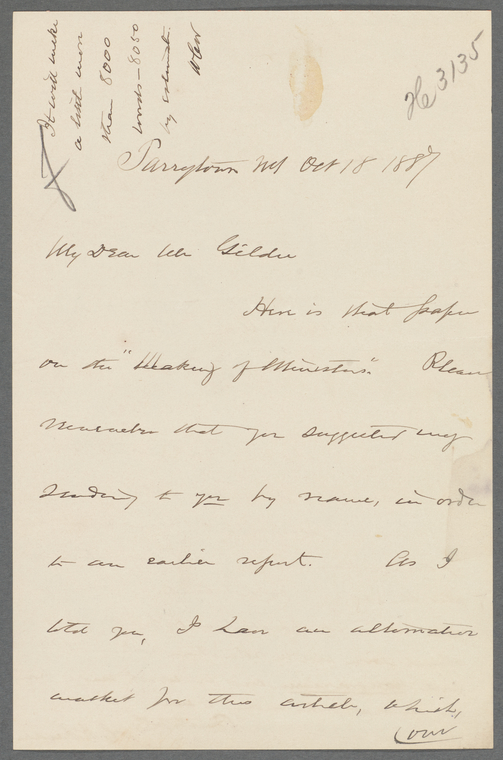 It will make
a little more
than 8000
words - 8050
by estimate.
He 3135
Tarrytown NY Oct 18 1887
My Dear Mr Gilder
Here is that paper
on the "Making of Ministers". Please
remember that you suggested my
sending to you by name, in order
to an earlier report. As I
told you, I have an alternative
market for this article, which,
(over